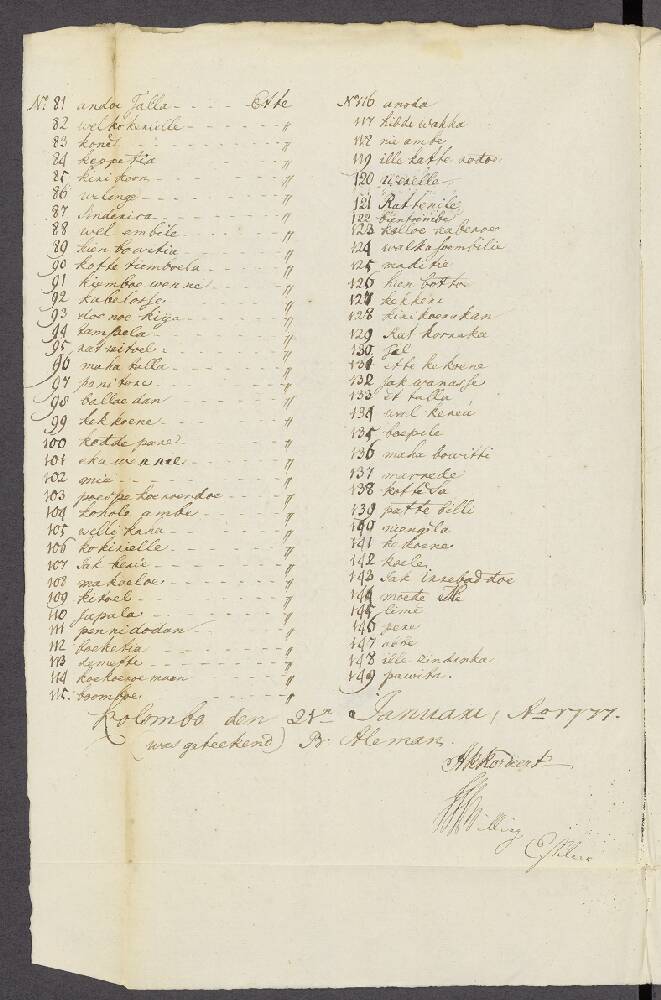 No 81 andoe Talla - - - - Ette
82 wel kokenielle - - - - - - "
83 konel - - - - - - - "
84 keppetia - - - - - - - "
85 kini koon - - - - - - - "
86 welenge - - - - - - - "
87 Lindenira - - - - - - "
88 wel ambile - - - - - - "
89 kien bowitia - - - - - "
90 kotte tiemboela - - - - - "
91 kiemboe wenne - - - - "
92 kabelosse - - - - - - "
93 doe noe kiya - - - - - "
94 tampala - - - - - - "
95 rat nitoel - - - - - - "
96 maha talla - - - - - "
97 peni tore - - - - - - "
98 balloe dan - - - - - "
99 kekkoene - - - - - "
100 kodde pære - - - - - "
101 eka wennoe - - - - - "
102 mie - - - - - - - "
103 poespe koewendoe - - - - "
104 koholo ambe - - - - - "
105 welli kaha - - - - - "
106 kokirielle - - - - - "
107 Jak kenie - - - - - "
108 ma koeloe - - - - - "
109 kitoel - - - - - - "
110 Japala - - - - - - "
111 pennidodan - - - - - "
112 boeketia - - - - - "
113 demette - - - - - "
114 koekoeroe maen - - - - "
115. boomboe - - - - - "
No 116 anoda
117 kibde wakka
118 nie ambe
119 ille katte rodoe
120 wirielle
121 Rattenile
122 bientenibe
123 kalloe nabenoe
124 walkasoembilie
125 maditie
126 kien botto
127 kekkene
128 kini koerakan
129 Rat Korreka
130 Jal
131 ette kekoene
132 Jak wanasse
133 et talla
134 wal keneu
135 boepile
136 maha bowitti
137 marrede
138 kottela
139 patte billi
140 mongila
141 kekoene
142 koele
143 Jak inrebaddoe
144 moete Ile
145 lime
146 pere
147 abbe
148 ille rindoeka
149 pawitta.
Kolombo den 21n Januarii, Ao 1777.
(was geteekend) B: Aleman.
Akkordeert
Billing